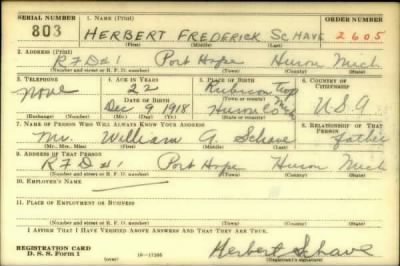 SERIAL NUMBER 1. NAME (Print) ORDER NUMBER
803 HERBERT FREDERICK SCHAVE 2605
(First) (Middle) (Last)
2. ADDRESS (Print)
RFD#1 Port Hope Huron Mich
(Number and street or R. F. D. number) (Town) (County) (State)
3. TELEPHONE 4. AGE IN YEARS 5. PLACE OF BIRTH 6. COUNTRY OF CITIZENSHIP
None 22 Rubicon Twp
DATE OF BIRTH Huron Co Mich U.S.A
Dec 9 1918
(Exchange) (Number) (Mo.) (Day) (Yr.) (State or country)
7. NAME OF PERSON WHO WILL ALWAYS KNOW YOUR ADDRESS 8. RELATIONSHIP OF THAT PERSON
Mr. William A. Schave father
(Mr., Mrs., Miss) (First) (Middle) (Last)
9. ADDRESS OF THAT PERSON
RFD#1 Port Hope Huron Mich
(Number and street or R. F. D. number) (Town) (County) (State)
10. EMPLOYER'S NAME
11. PLACE OF EMPLOYMENT OR BUSINESS
(Number and street or R. F. D. number) (Town) (County) (State)
I AFFIRM THAT I HAVE VERIFIED ABOVE ANSWERS AND THAT THEY ARE TRUE.
REGISTRATION CARD
D. S. S. Form 1 16—17105 Herbert Schave